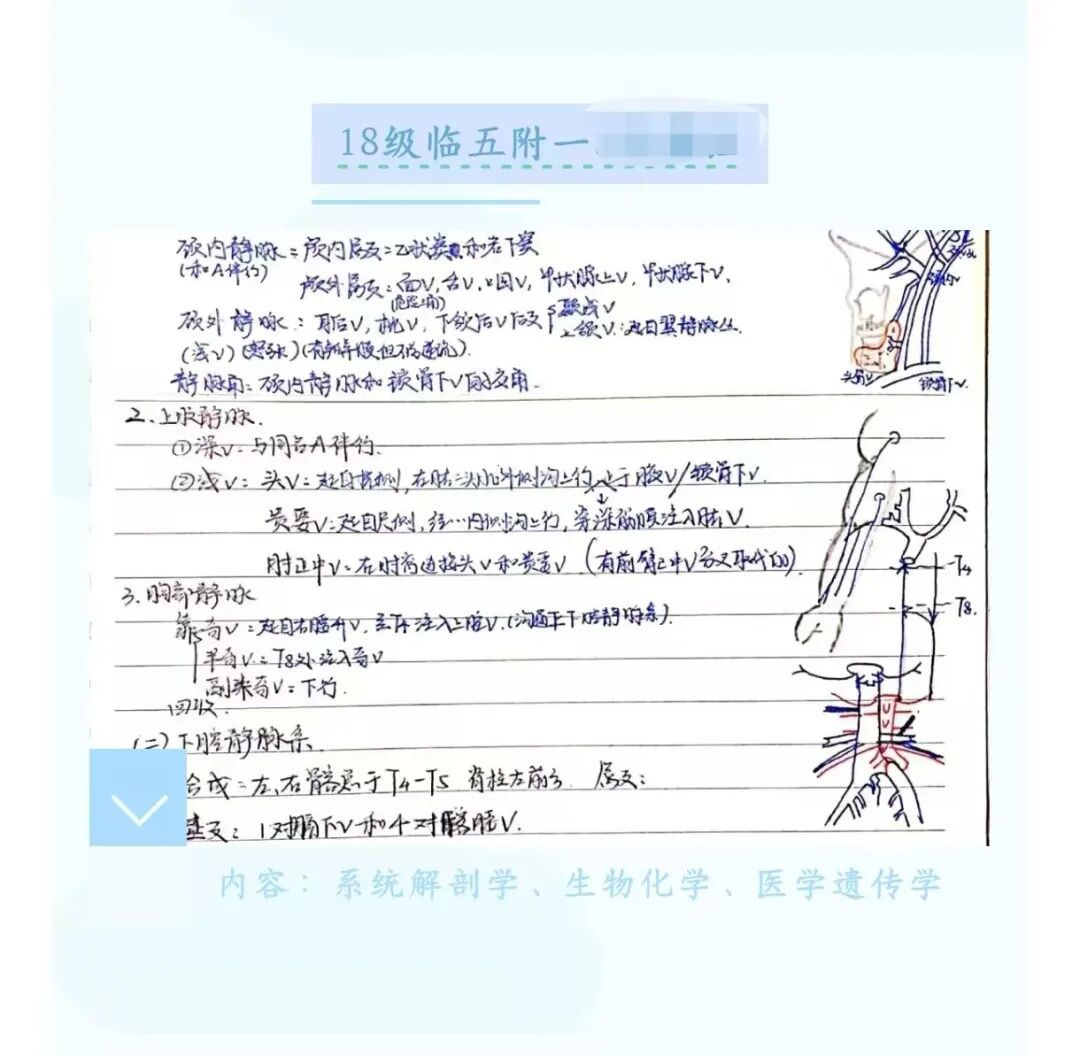 18级临五附一
颈内静脉：颅内属支：乙状窦和岩下窦
(和A伴行)
颅外属支：面V,舌V,咽V,甲状腺上V,甲状腺下V.
(危险三角)
颈外静脉：耳后V,枕V,下颌后V后支
颞浅V
上颌V:起自翼静脉丛
(浅V)(怒张)(有瓣膜但不能逆流).
静脉角：颈内静脉和锁骨下V的交角.
头臂V
锁骨下V.
2.上肢静脉.
①深V：与同名A伴行.
②浅V：头V：起自桡侧,在肱二头肌外侧沟上行,止于腋V/锁骨下V.
贵要V:起自尺侧,经…内侧沟上行,穿深筋膜注入肱V.
肘正中V：在肘窝连接头V和贵要V.(有前臂正中V分叉取代的).
T4
T8.
3.胸部静脉
奇V：起自右腰升V,至T4注入上腔V.(沟通上下腔静脉系).
半奇V：T8处注入奇V
副半奇V：下行.
回收.
(二)下腔静脉系.
合成：左、右髂总于T4-T5 脊柱右前方. 属支：
壁支：1对膈下V和4对腰V.
内容：系统解剖学、生物化学、医学遗传学